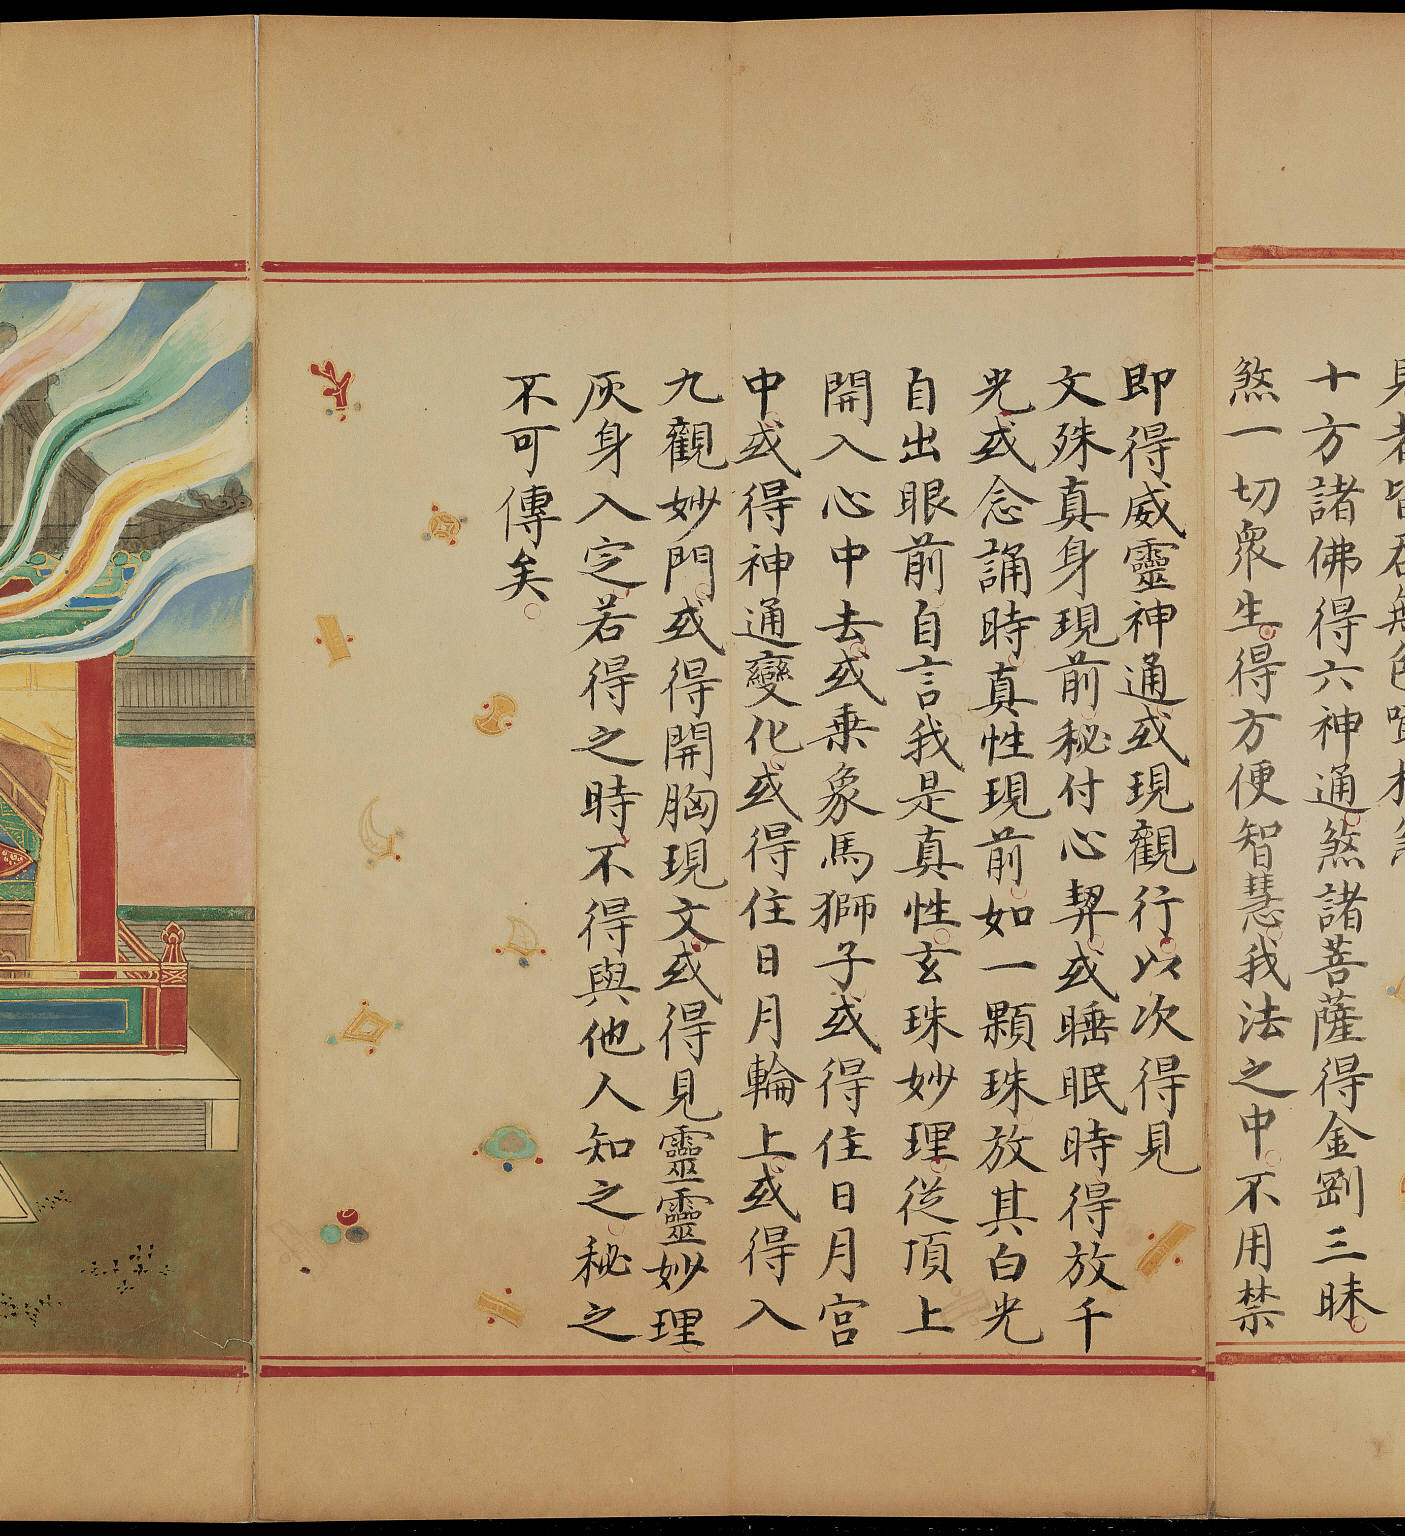 十方諸佛得六神通煞諸菩薩得金剛三昧
煞一切衆生得方便智慧我法之中不用禁
即得威靈神通或現觀行以次得見
文殊真身現前秘付心契或睡眠時得放千
光或念誦時真性現前如一顆珠放其白光
自出眼前自言我是真性玄珠妙理從頂上
開入心中去或乗象馬獅子或得住日月宮
中或得神通變化或得住日月輪上或得入
九觀妙門或得開胸現文或得見靈靈妙理
灰身入定若得之時不得與他人知之秘之
不可傳矣